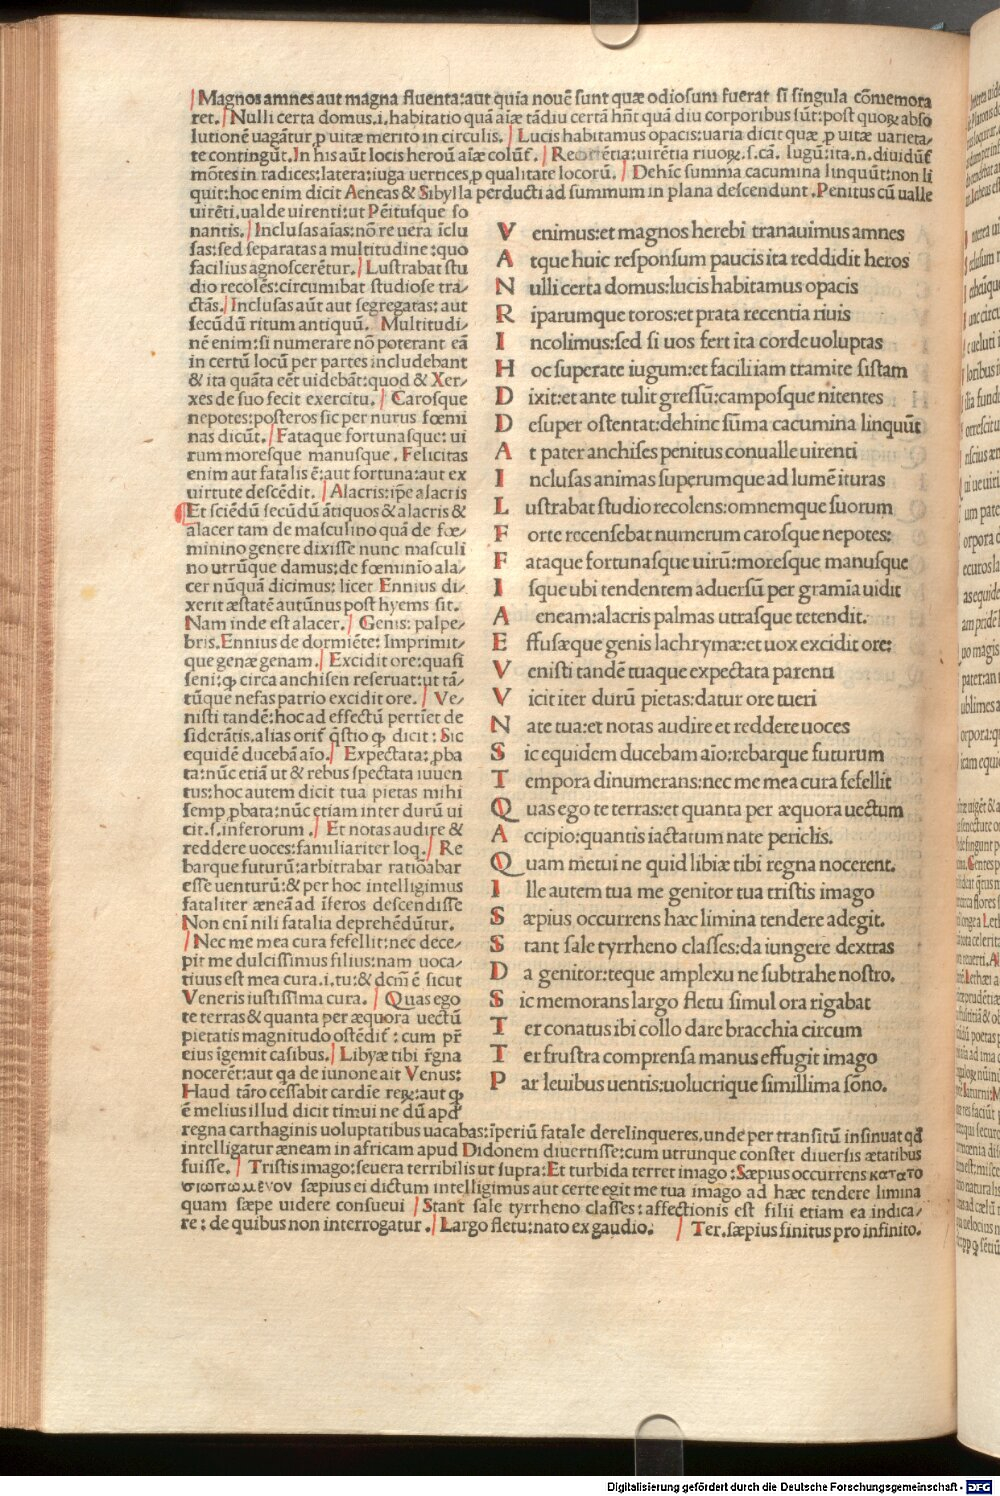 Magnos amnes aut magna fluenta:aut quia nouē sunt quæ odiosum fuerat si singula cōmemora
ret. Nulli certa domus.i.habitatio quā aīæ tādiu certā hn̄t quā diu corporibus sūt:post quoꝝ abso
lutionē uagātur ꝓ uitæ merito in circulis. Lucis habitamus opacis:uaria dicit quæ ꝓ uitæ uarieta-
te contingūt.In his aūt locis heroū aīæ colūt̄. Recētia:uirētia riuoꝝ.s.cā. Iugū:ita.n.diuidūt̄
mōtes in radices:latera:iuga uertices ꝓ qualitate locorū. Dehīc summa cacumina linquūt:non li
quit:hoc enim dicit Aeneas & Sibylla perducti ad summum in plana descendunt.Penitus cū ualle
uirēti.ualde uirenti:ut Pēitusque so
nantis. Inclusas aīas:nō re uera īclu
sas:sed separatas a multitudine:quo
facilius agnoscerētur. Lustrabat stu
dio recolēs:circumibat studiose tra-
ctās. Inclusas aūt aut segregatas: aut
secūdū ritum antiquū. Multitudi-
nē enim:si numerare nō poterant eā
in certū locū per partes includebant
& ita quāta eēt uidebāt:quod & Xer-
xes de suo fecit exercitu. Carosque
nepotes:posteros sic per nurus fœmi
nas dicūt. Fataque fortunasque: ui
rum moresque manusque. Felicitas
enim aut fatalis ē:aut fortuna:aut ex
uirtute descēdit. Alacris:ip̄e alacris
Et sciēdū secūdū ātiquos & alacris &
alacer tam de masculino quā de fœ-
minino genere dixisse nunc masculi
no utrūque damus:de fœminīo ala-
cer nūquā dicimus: licet Ennius di-
xerit æstatē autūnus post hyems sit.
Nam inde est alacer. Genis: palpe-
bris.Ennius de dormiēte: Imprimit-
que genæ genam. Excidit ore:quasi
seni:ꝙ circa anchisen reseruat:ut tā-
tūque nefas patrio excidit ore. Ve-
nisti tandē:hoc ad effectū pertīet de
siderātis.alias orit̄ q̄stio ꝙ dicit: Sic
equidē ducebā aīo. Expectata: ꝓba
ta:nūc etiā ut & rebus spectata iuuen
tus:hoc autem dicit tua pietas mihi
semꝑ ꝓbata:nūc etiam inter durū ui
cit.s.inferorum. Et notas audire &
reddere uoces:familiariter loq. Re
barque futurū:arbitrabar ratiōabar
esse uenturū:& per hoc intelligimus
fataliter æneā ad īferos descendisse
Non enī nili fatalia deprehēdūtur.
Nec me mea cura fefellit:nec dece-
pit me dulcissimus filius:nam uoca-
tiuus est mea cura.i.tu:& dcm̄ ē sicut
Veneris iustissima cura. Quas ego
te terras & quanta per æquora uectū
pietatis magnitudo ostēdit̄: cum pr̄
eius īgemit casibus. Libyæ tibi r̄gna
nocerēt:aut qa de iunone ait Venus:
Haud tāro cessabit cardīe reꝝ:aut ꝙ
ē melius illud dicit timui ne dū apd̄
regna carthaginis uoluptatibus uacabas:īperiū fatale derelinqueres.unde per transitū insinuat qđ
intelligatur æneam in africam apud Didonem diuertisse:cum utrunque constet diuersis ætatibus
fuisse. Tristis imago:seuera terribilis ut supra:Et turbida terret imago:Sæpius occurrens κατατο
σιωπωμενον sæpius ei dictum intelligimus aut certe egit me tua imago ad hæc tendere limina
quam sæpe uidere consueui Stant sale tyrrheno classes:affectionis est filii etiam ea indica-
re: de quibus non interrogatur. Largo fletu:nato ex gaudio. Ter.sæpius finitus pro infinito.
V enimus:et magnos herebi tranauimus amnes
A tque huic responsum paucis ita reddidit heros
N ulli certa domus:lucis habitamus opacis
R iparumque toros:et prata recentia riuis
I ncolimus:sed si uos fert ita corde uoluptas
H oc superate iugum:et facili iam tramite sistam
D ixit:et ante tulit gressū:camposque nitentes
D esuper ostentat:dehinc sūma cacumina linquūt
A t pater anchises penitus conualle uirenti
I nclusas animas superumque ad lumē ituras
L ustrabat studio recolens:omnemque suorum
F orte recensebat numerum carosque nepotes:
F ataque fortunasque uirū:moresque manusque
I sque ubi tendentem aduersū per gramīa uidit
A eneam:alacris palmas utrasque tetendit.
E ffusæque genis lachrymæ:et uox excidit ore:
V enisti tandē tuaque expectata parenti
V icit iter durū pietas:datur ore tueri
N ate tua:et notas audire et reddere uoces
S ic equidem ducebam aīo:rebarque futurum
T empora dinumerans:nec me mea cura fefellit
Q uas ego te terras:et quanta per æquora uectum
A ccipio:quantis iactatum nate periclis.
Q uam metui ne quid libiæ tibi regna nocerent.
I lle autem tua me genitor tua tristis imago
S æpius occurrens hæc limina tendere adegit.
S tant sale tyrrheno classes:da iungere dextras
D a genitor:teque amplexu ne subtrahe nostro.
S ic memorans largo fletu simul ora rigabat
T er conatus ibi collo dare bracchia circum
T er frustra comprensa manus effugit imago
P ar leuibus uentis:uolucrique simillima sōno.
Digitalisierung gefördert durch die Deutsche Forschungsgemeinschaft - DFG